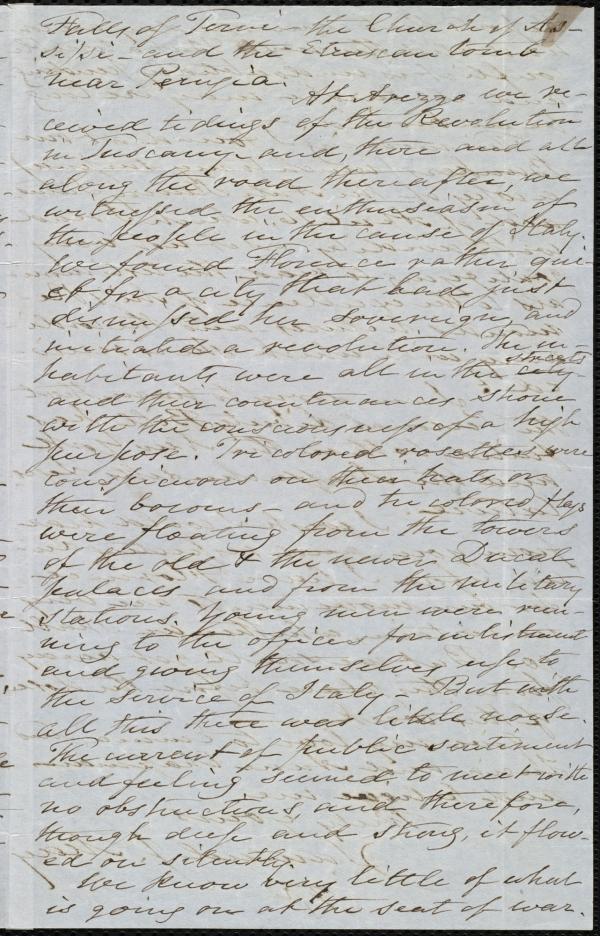 Falls of Terni - the Church of As-
sisi - and the Etruscan tomb
near Perugia.
At Arezzo we re-
ceived tidings of the Revolution
in Tuscany and, there and all
along the road thereafter, we
witnessed the enthusiasm of
the people in the cause of Italy.
We found Florence rather qui-
et for a city that had just
dismissed her Sovereign, and
initiated a revolution. The in-
streets
habitants were all in the city
and their countenances shone
with the consciousness of a high
purpose. Tri colored rosettes were
conspicuous on their hats or
their bosoms - and tri colored flags
were floating from the towers
of the old & the newer Ducal
palaces and from the military
stations. Young men were run-
ning to the offices for inlistment
and giving themselves up to
the service of Italy - But with
all this there was little noise.
The current of public sentiment
and feeling seemed to meet with
no obstructions, and therefore,
though deep and strong, it flow-
ed on silently.
We know very little of what
is going on at the seat of war.